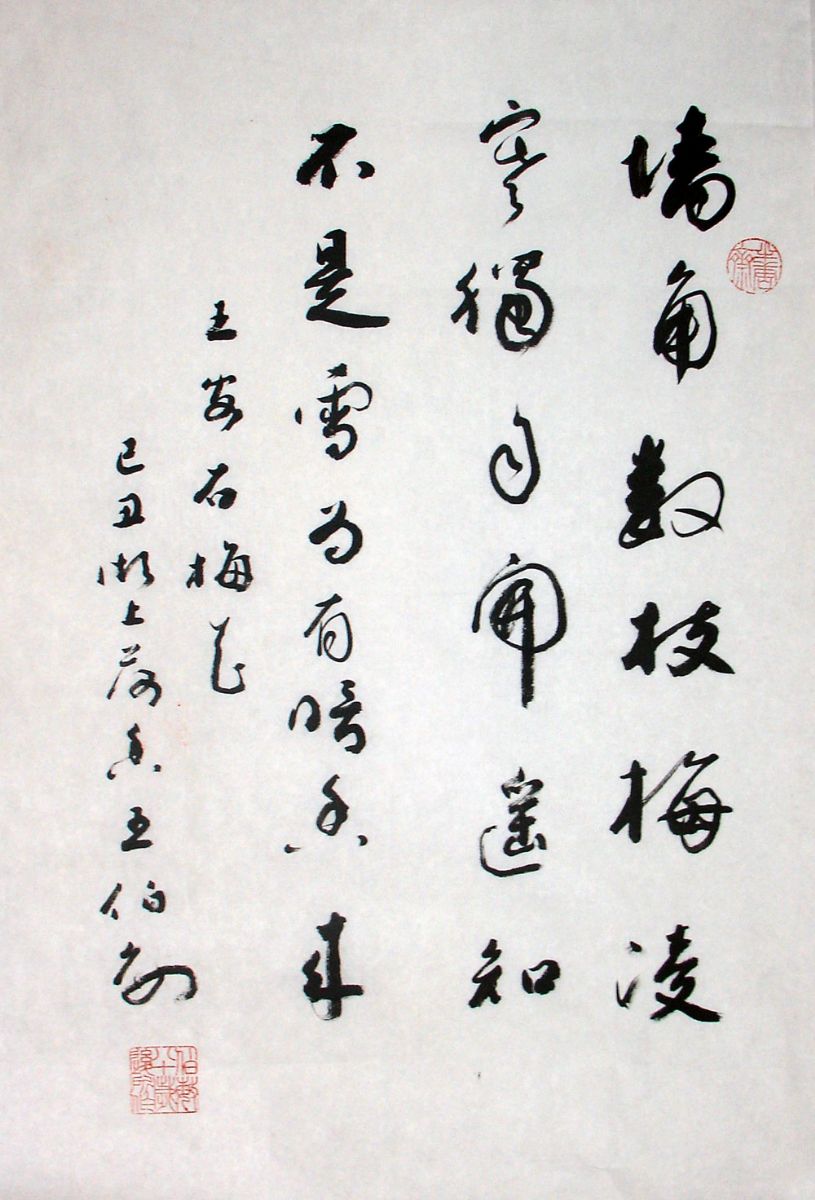 墙角数枝梅凌
寒獨自開遥知
不是雪为有暗香来
王安石梅花
己丑湖上荷香王伯敏